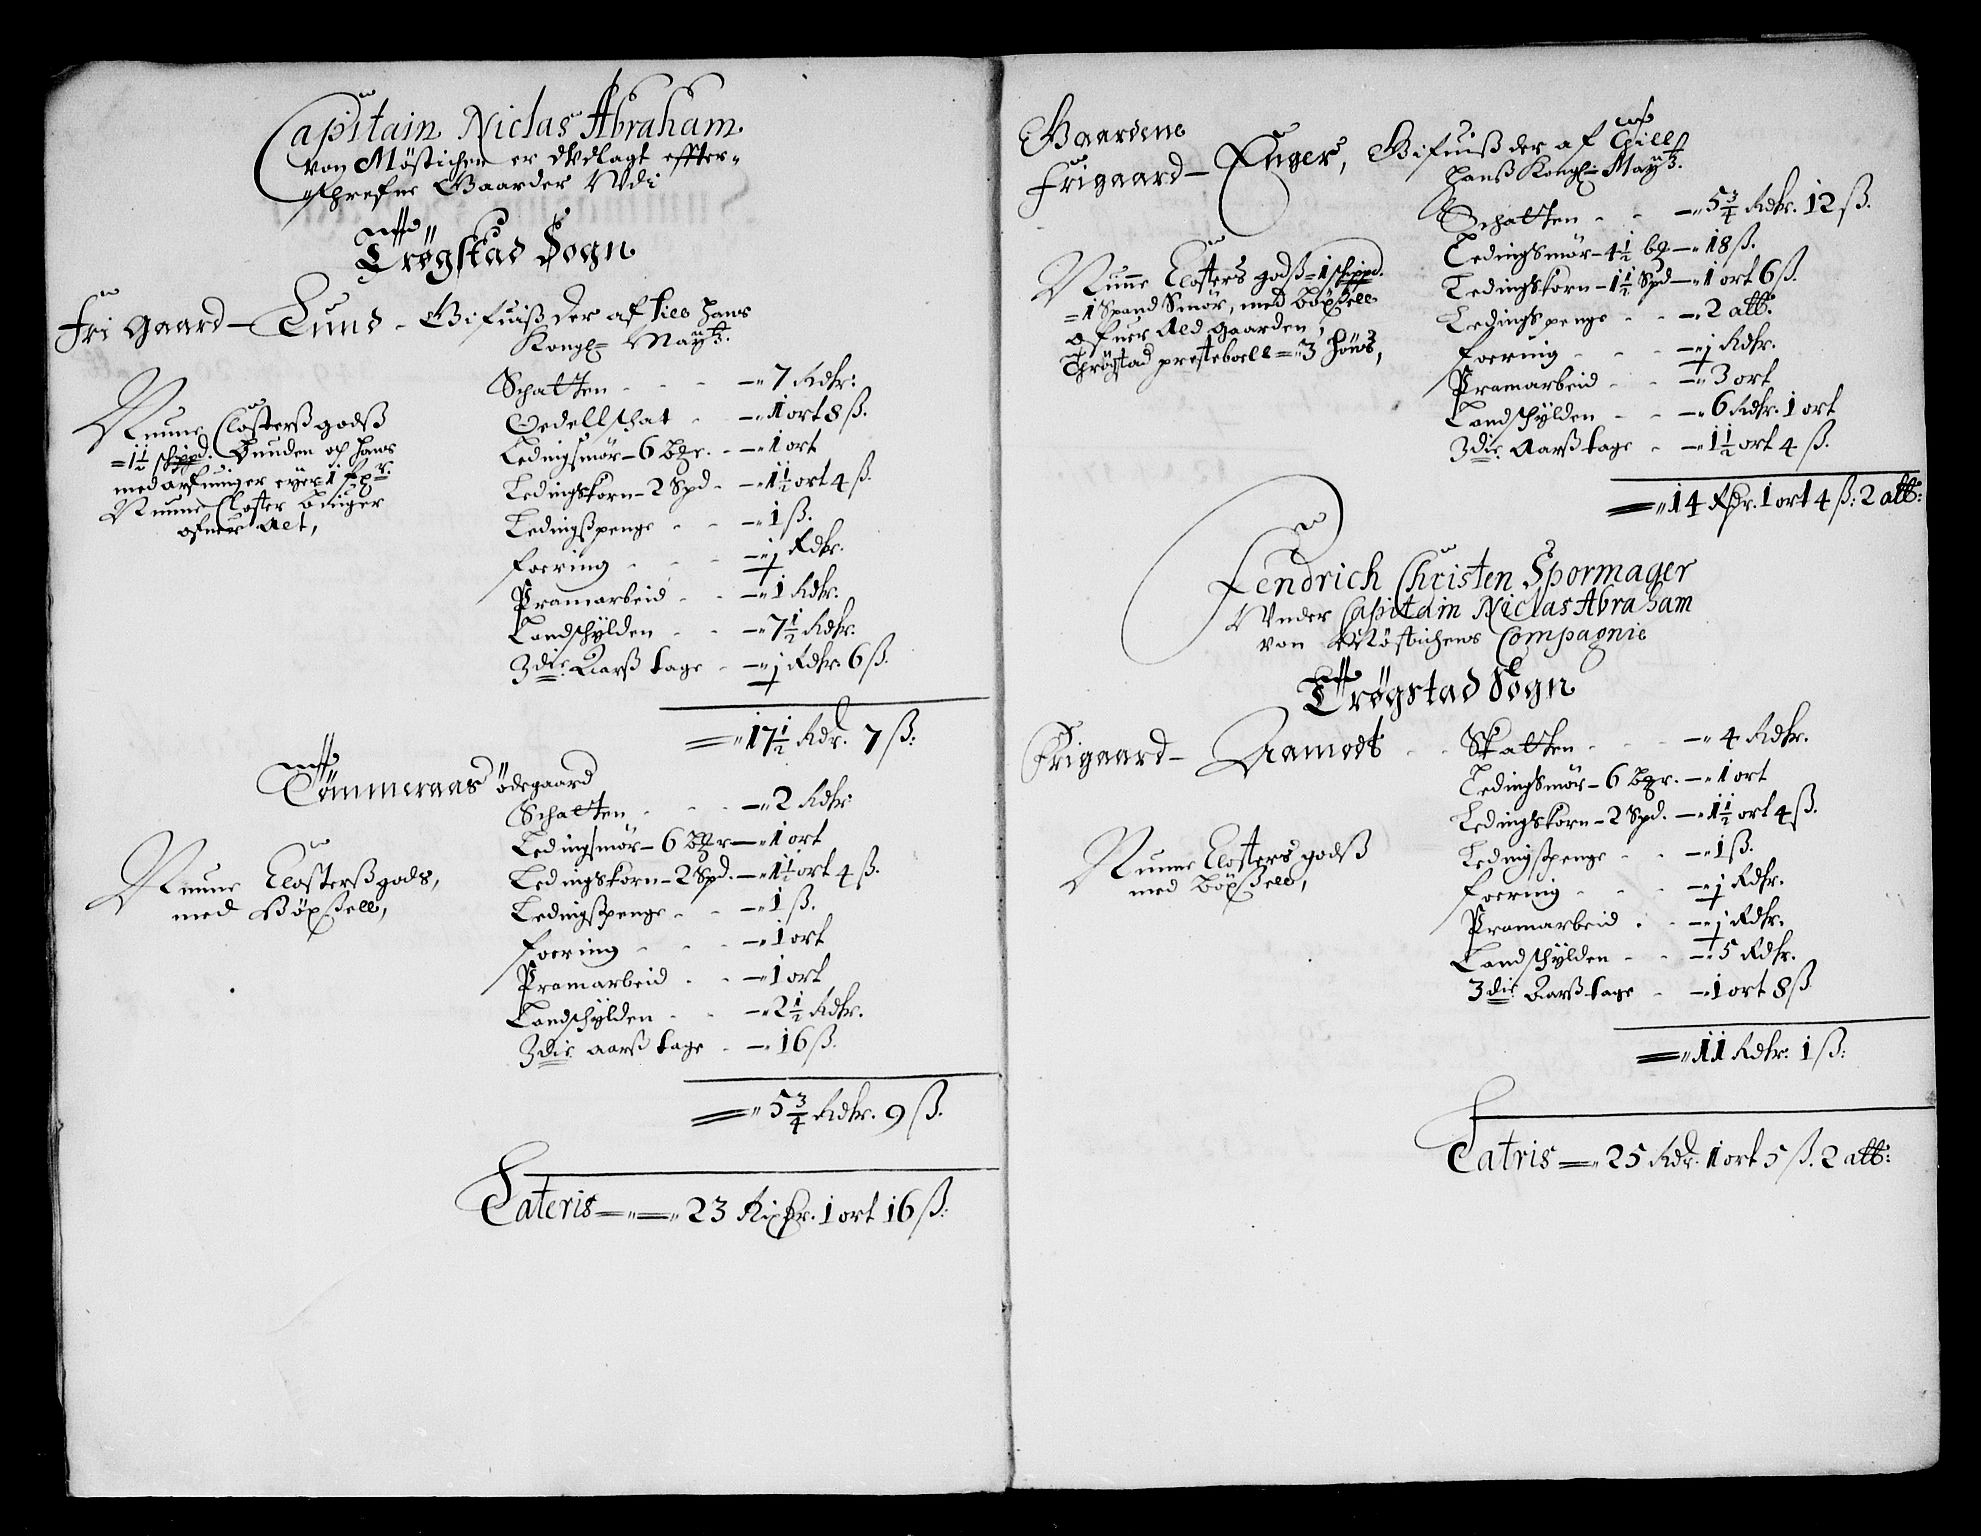 Capitain Niclas Abraham
von Möstichen er Udlagt effter-
schrefne Gaarder Udi
Trögstad Sogn
Fri Gaard - Lund - Gifuiß der af til Hans
Kongl: Maytz.
Nunne Closterß godß
= 1½ schippd. Bunden och Hans
med arfuinger eyer 1 fxr.
Nunne Closter böxger
ofuer alt,
Schatten - - - 7 Rdhr:
Oedellschat - - 1 ort 8 ß.
Ledingsmör - 6 bzr. - 1 ort
Ledingskorn - 2 Spd - 1½ ort 4 ß.
Ledingßpenge - - 1 ß.
Foering - - - j Rdhr.
Pramarbeid - - 1 Rdhr.
Landschylden - - 7½ Rdhr.
3die Aarß tage - j Rdhr. 6 ß.
= 17½ Rdr. 7 ß:
Tömmeraas ödegaard
Nunne Closterß gods,
med Böxßell,
Schatten - - - 2 Rdhr
Ledingsmör - 6 bzr - 1 ort
Ledingskorn - 2 Spd. - 1½ ort 4 ß.
Ledingßpenge - - 1 ß.
Foering - - - 1 ort
Pramarbeid - - 1 ort
Landschylden - - 2½ Rdhr.
3die aarß tage - 16 ß.
= 5¾ Rdhr. 9 ß.
Lateris = 23 Rixdr. 1 ort 16 ß:
Gaardene
Frigaard - Enger, Gifuiß der af till
Hanß Kongl- Maytz.
Nunne Closters godß = 1 schippd.
= 1 Spand Smör, med böxßell
ofuer Ald gaarden,
Thrögstad presteboell = 3 Huds,
Schatten - - 5¾ Rdhr. 12 ß.
Ledingsmör - 4½ bz - 18 ß.
Ledingskorn - 1½ Spd - 1 ort 6 ß.
Ledingspenge - - 2 alb:
Foering - - - j Rdhr.
Pramarbeid - - 3 ort
Landschylden - - 6 Rdhr. 1 ort
3die Aarß tage - 1½ ort 4 ß.
= 14 Rdr. 1 ort 4 ß: 2 alb:
Fendrich Christen Spormager
Under Capitain Niclas Abraham
von Möstichens Compagnie
Trögstad Sogn
Frigaard - Aamodt
Nunne Closters godß
med böxßell,
Skatten - - - 4 Rdhr.
Ledingsmör - 6 bzr. - 1 ort
Ledingskorn - 2 Spd. - 1½ ort 4 ß.
Ledingßpenge - - 1 ß.
Foering - - - j Rdhr.
Pramarbeid - - j Rdhr.
Landschylden - - 5 Rdhr.
3die Aarß tage - 1 ort 8 ß
= 11 Rdhr: 1 ß:
Latris = 25 Rdr. 1 ort 5 ß. 2 alb: